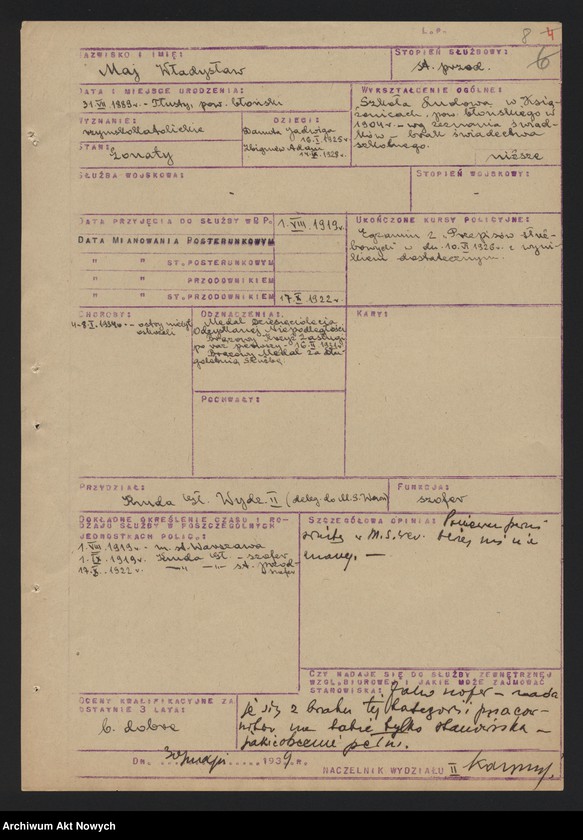 L.P.
8 4
6
NAZWISKO I IMIĘ:
Maj Władysław
STOPIEŃ SŁUŻBOWY:
st. przod.
DATA I MIEJSCE URODZENIA:
31.VII 1889r. - Tłusty, pow. błoński
WYKSZTAŁCENIE OGÓLNE:
Szkoła Ludowa w Książenicach, pow. błońskiego w
1904r. - wg zeznania świadków - brak świadectwa
szkolnego.
niższe
WYZNANIE:
rzymskokatolickie
STAN:
żonaty
DZIECI:
Danuta Jadwiga
Zbigniew Adam
SŁUŻBA WOJSKOWA:
-
STOPIEŃ WOJSKOWY:
-
DATA PRZYJĘCIA DO SŁUŻBY W P.P.
1.VIII.1919r.
DATA MIANOWANIA POSTERUNKOWYM
" " ST.POSTERUNKOWYM
" " PRZODOWNIKIEM
" " ST.PRZODOWNIKIEM
17.X 1922r
UKOŃCZONE KURSY POLICYJNE:
Egzamin z "Przepisów służbowych" w dn. 10.VI 1926r. z wynikiem dostatecznym.
CHOROBY:
4-8.I.1934r. - ostry nieżyt
oskrzeli
ODZNACZENIA:
Medal Dziesięciolecia
Odzyskanej Niepodległości
Brązowy Krzyż Zasługi
po raz pierwszy
Brązowy Medal za Długoletnią Służbę.
KARY:
POCHWAŁY:
PRZYDZIAŁ:
Kmda Gł. Wydz. II (deleg. do M.S.Wewn)
FUNKCJA:
szofer
DOKŁADNE OKREŚLENIE CZASU I RODZAJU SŁUŻBY W POSZCZEGÓLNYCH
JEDNOSTKACH POLIC.:
1.VIII.1919r. - m. st. Warszawa
1.IX.1919r. Kmda Gł. - szofer
17.X.1922r. —"— —"— st. przod.
szofer
SZCZEGÓŁOWA OPINIA:
Ponieważ
w M.S.Wew. bliżej mi nie
znany. —
CZY NADAJE SIĘ DO SŁUŻBY ZEWNĘTRZNEJ
WZGL. BIUROWEJ I JAKIE MOŻE ZAJMOWAĆ
STANOWISKA:
Jako szofer - nada
je się z braku tej kategorii pracow-
tylko stanowiska -
jakie obecnie pełni.
OCENY KWALIFIKACYJNE ZA
OSTATNIE 3 LATA:
b. dobre
Dn. 1939r.
NACZELNIK WYDZIAŁU II
Archiwum Akt Nowych